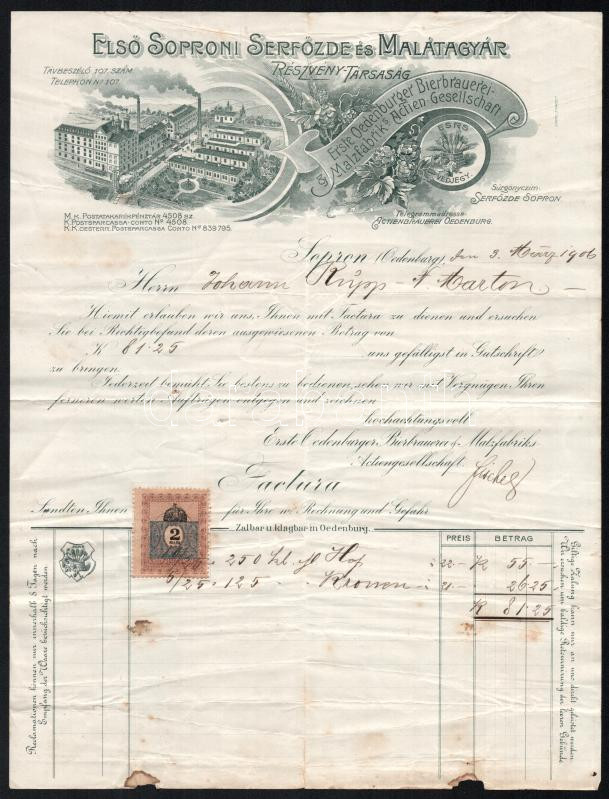 ELSŐ SOPRONI SERFŐZDE ÉS MALÁTAGYÁR
RÉSZVÉNY-TÁRSASÁG
TÁVBESZÉLŐ 107. SZÁM
TELEPHON No 107.
Erste Oedenburger Bierbrauerei-
& Malzfabriks Actien Gesellschaft
ESRS
VÉDJEGY.
Sürgönyczim:
SERFŐZDE SOPRON.
Telegrammadresse:
ACTIENBRAUEREI OEDENBURG.
M. K. POSTATAKARÉKPÉNZTÁR 4508 SZ.
K. POSTSPARCASSA-CONTO No 4508.
K. K. OESTERR. POSTSPARCASSA CONTO No 839795.
Sopron (Oedenburg), den 3. März 1906
Herrn Johann Rupp - N. Marton
Hiemit erlauben wir uns, Ihnen mit Factura zu dienen und ersuchen
Sie bei Richtigbefund deren ausgewiesenen Betrag von
K 81·25 uns gefälligst in Gutschrift
zu bringen.
Jederzeit bemüht, Sie bestens zu bedienen, sehen wir mit Vergnügen Ihren
ferneren werten Aufträgen entgegen und zeichnen
hochachtungsvoll
Erste Oedenburger Bierbrauerei & Malzfabriks
Actiengesellschaft
Factura
Sandten Ihnen für Ihre w. Rechnung und Gefahr
Zalbar u. klagbar in Oedenburg.
PREIS BETRAG
2
250 hl Hof 22 - K 55 -
5/25 · 125 Kronen 21 - 26·25
K 81·25
Reclamationen können nur innerhalb 8 Tagen nach
Empfang der Waare berücksichtigt werden.
Giltige Zalung kann nur an uns direkt geleistet werden.
Wir ersuchen um baldige Retournirung der leeren Gebinde.